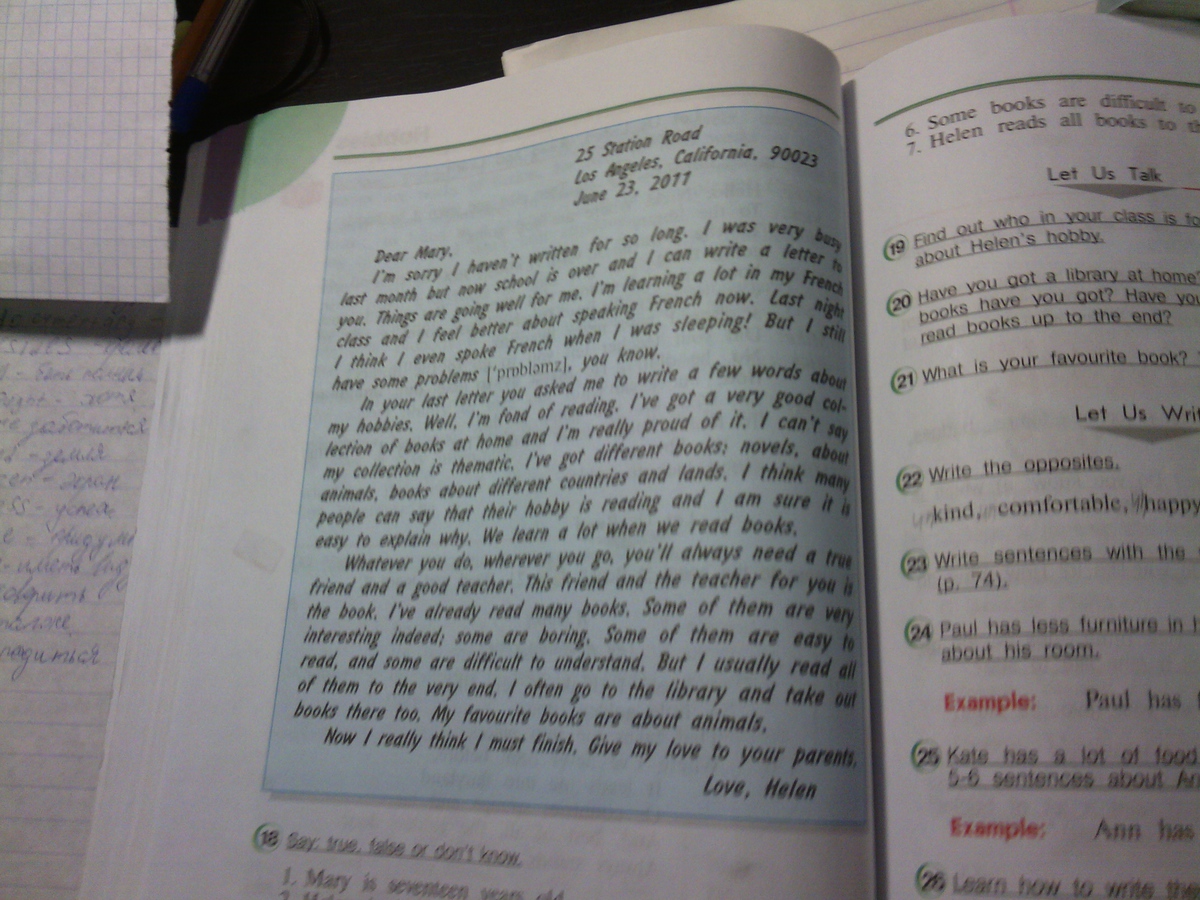 25 Station Road
Los Angeles, California, 90023
June 23, 2011
Dear Mary,
I'm sorry I haven't written for so long. I was very busy
last month but now school is over and I can write a letter to
you. Things are going well for me. I'm learning a lot in my French
class and I feel better about speaking French now. Last night
I think I even spoke French when I was sleeping! But I still
have some problems ['prɒbləmz], you know.
In your last letter you asked me to write a few words about
my hobbies. Well, I'm fond of reading. I've got a very good col-
lection of books at home and I'm really proud of it. I can't say
my collection is thematic. I've got different books: novels, about
animals, books about different countries and lands. I think many
people can say that their hobby is reading and I am sure it is
easy to explain why. We learn a lot when we read books.
Whatever you do, wherever you go, you'll always need a true
friend and a good teacher. This friend and the teacher for you is
the book. I've already read many books. Some of them are very
interesting indeed; some are boring. Some of them are easy to
read, and some are difficult to understand. But I usually read all
of them to the very end. I often go to the library and take out
books there too. My favourite books are about animals.
Now I really think I must finish. Give my love to your parents.
Love, Helen
18 Say: true, false or don't know.
1. Mary is seventeen years old.
6. Some books are difficult to
7. Helen reads all books to
Let Us Talk
19 Find out who in your class is
about Helen's hobby.
20 Have you got a library at home?
books have you got? Have
read books up to the end?
21 What is your favourite book?
Let Us
22 Write the opposites.
kind, comfortable, happy
23 Write sentences with the
(p. 74).
24 Paul has less furniture in
about his room.
Example: Paul has
25 Kate has a lot of food
5-6 sentences about
Example: Ann has
26 Learn how to write
земля
экран